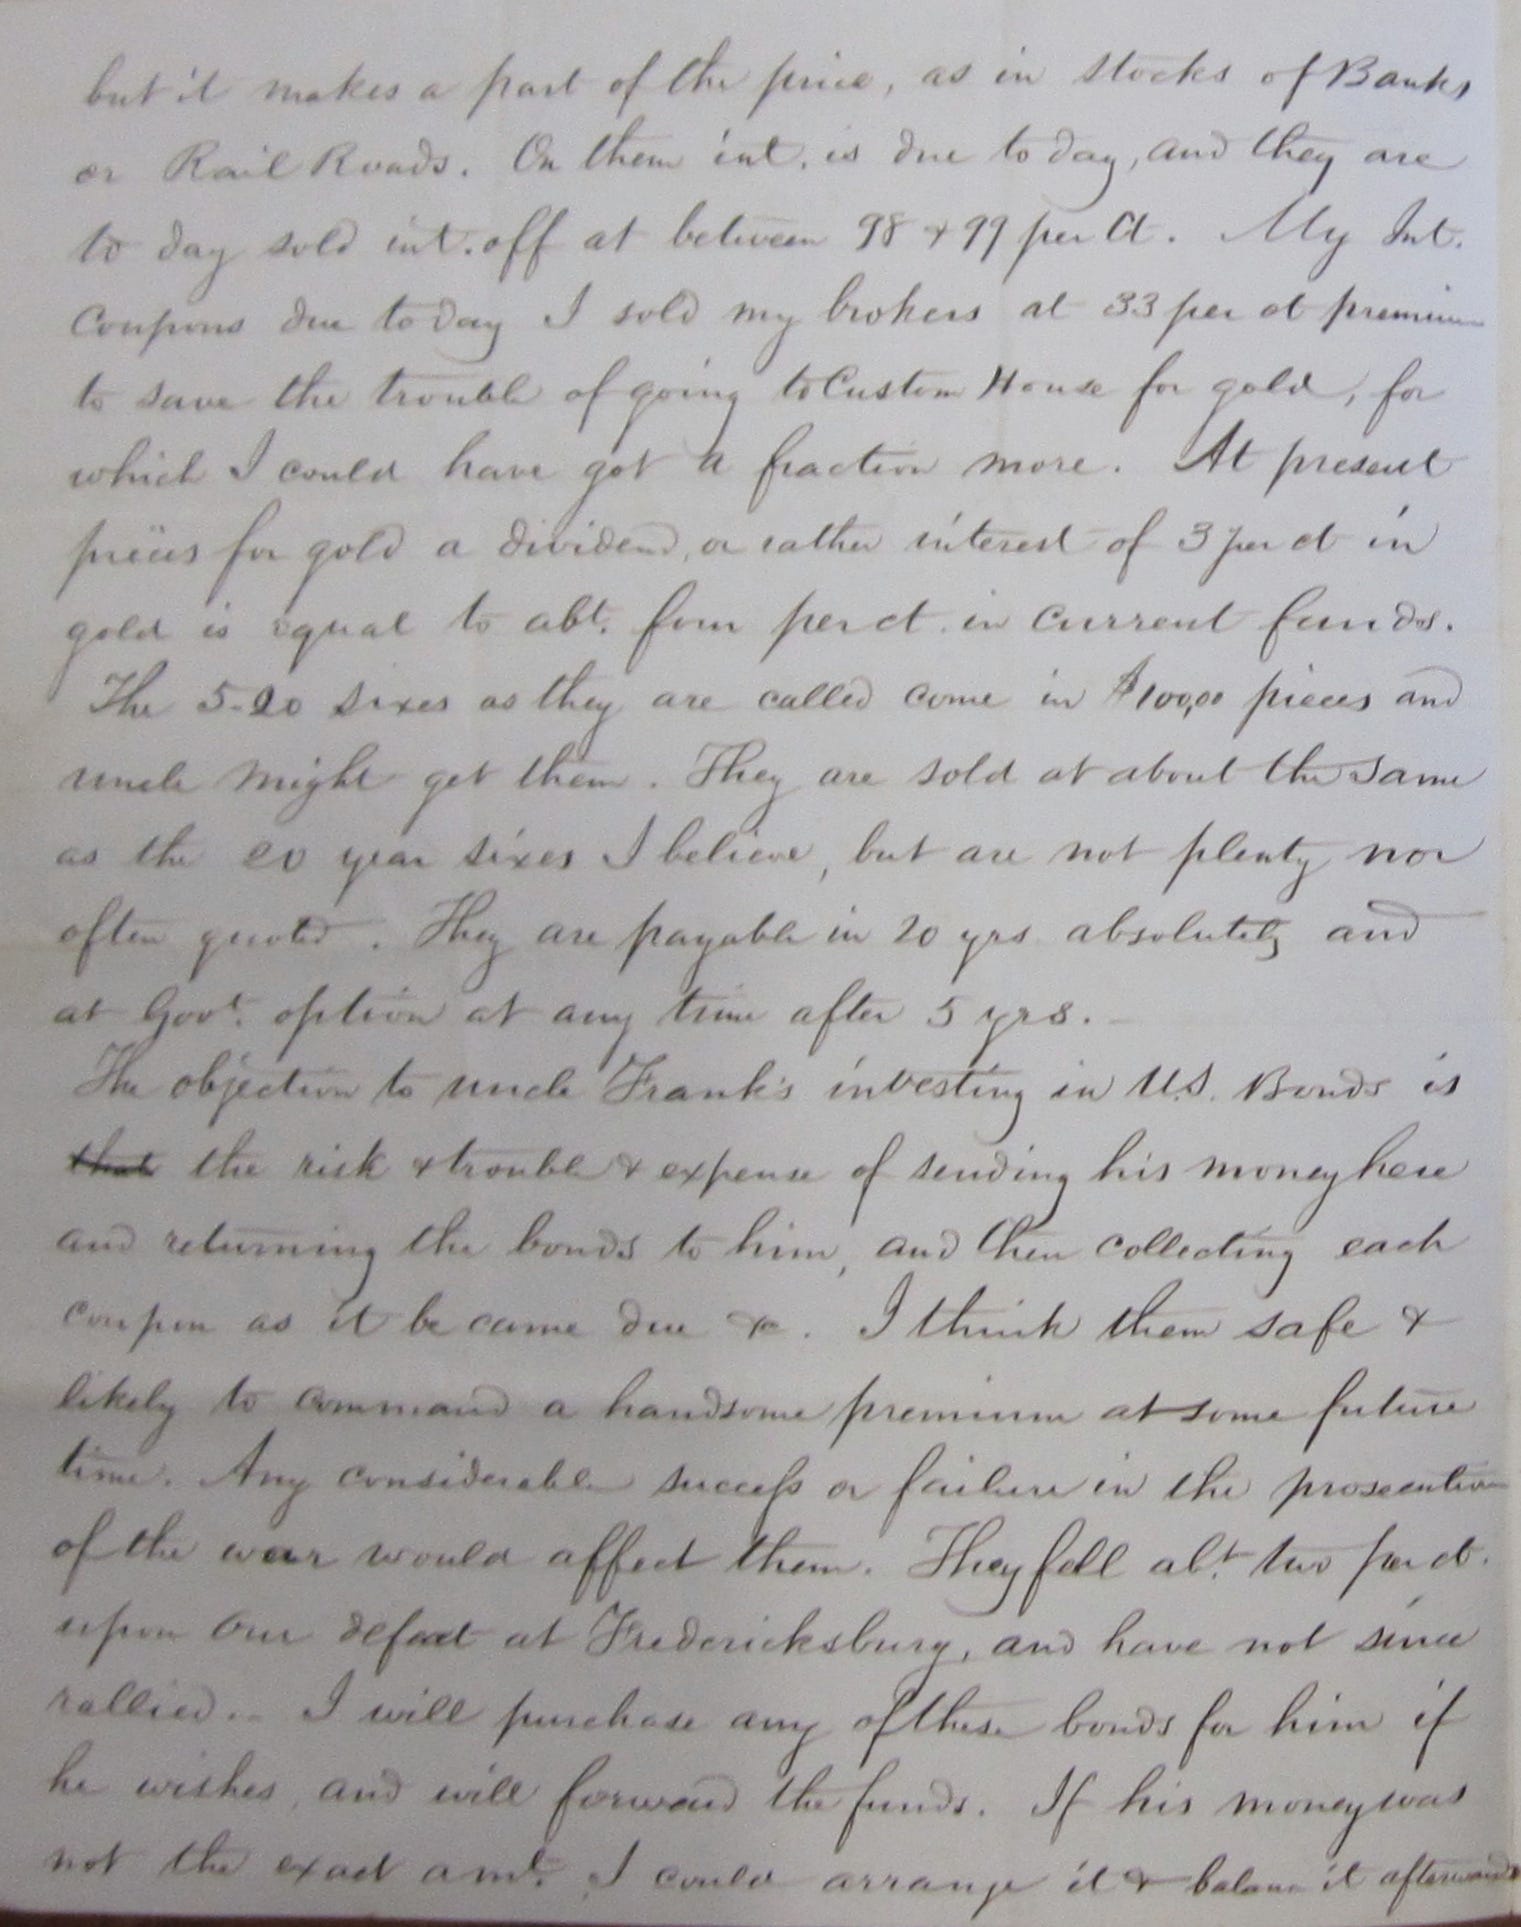 but it makes a part of the price, as in stocks of Banks
or Rail Roads. On them int. is due to day, and they are
to day sold int. off at between 98 & 99 per Ct. My Int.
Coupons due to day I sold my brokers at 33 per ct premium
to save the trouble of going to Custom House for gold, for
which I could have got a fraction more. At present
prices for gold a dividend, or rather interest of 3 per ct in
gold is equal to abt. four per ct. in current funds.
The 5-20 sixes as they are called come in $100,00 pieces and
uncle might get them. They are sold at about the same
as the 20 year sixes I believe, but are not plenty nor
often quoted. They are payable in 20 yrs absolutely and
at Govt. option at any time after 5 yrs.
The objection to uncle Frank's investing in U.S. Bonds is
that the risk & trouble & expense of sending his money here
and returning the bonds to him, and then collecting each
coupon as it be came due &c. I think them safe &
likely to command a handsome premium at some future
time. Any considerable success or failure in the prosecution
of the war would affect them. They fell abt. two per ct.
upon our defeat at Fredericksburg, and have not since
rallied.- I will purchase any of these bonds for him if
he wishes, and will forward the funds. If his money was
not the exact amt. I could arrange it & balance it afterwards